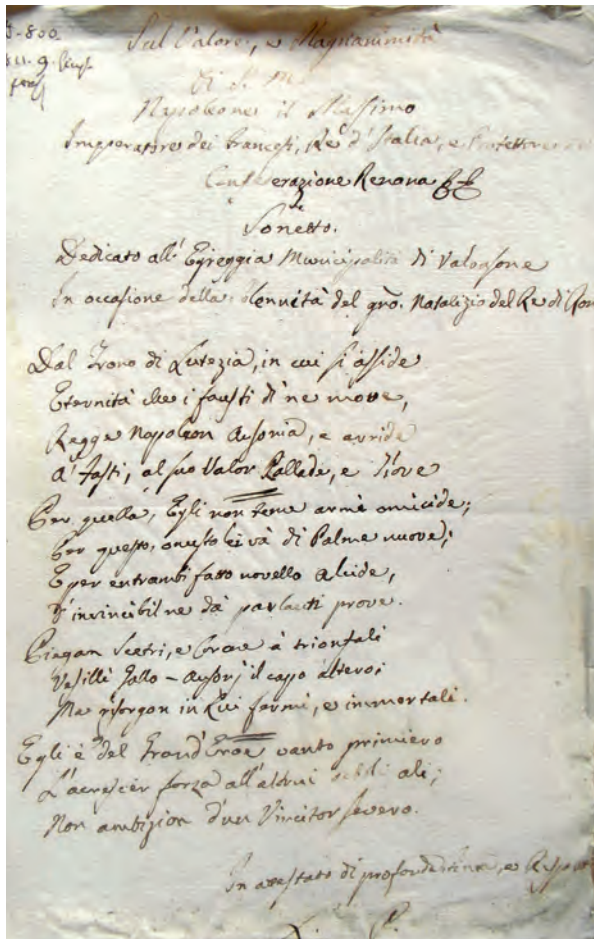 Sul Valore, e Magnanimità
di S. M.
Napoleone il Massimo
Imperatore dei Francesi, Re d'Italia, e Protettore
Confederazione Renana
Sonetto.
Dedicato all' Egreggia Municipalità di Valvasone
In occasione della solennità del gno. Natalizio del Re di Rom
Dal Trono di Lutezia, in cui s'asside
Eternità che i fausti dì ne move,
Regge Napoleon Ausonia, e arride
A' Fasti, al suo Valor Pallade, e Giove
Per quella, Egli non teme armi omicide;
Per questo, onusto ei và di Palme nuove;
E per entrambi fatto novello Alcide,
D'invincibil ne dà parlanti prove.
Piegan Scetri, e Corone à trionfali
Vessilli Gallo-Ausonj il capo altero;
Ma risorgon in Lui fermi, e immortali.
Egli è del Grand'Eroe vanto primiero
L'acrescer forza all'altrui debili ali;
Non ambizion d'un Vincitor severo.
In attestato di profonda stima, e Rispet